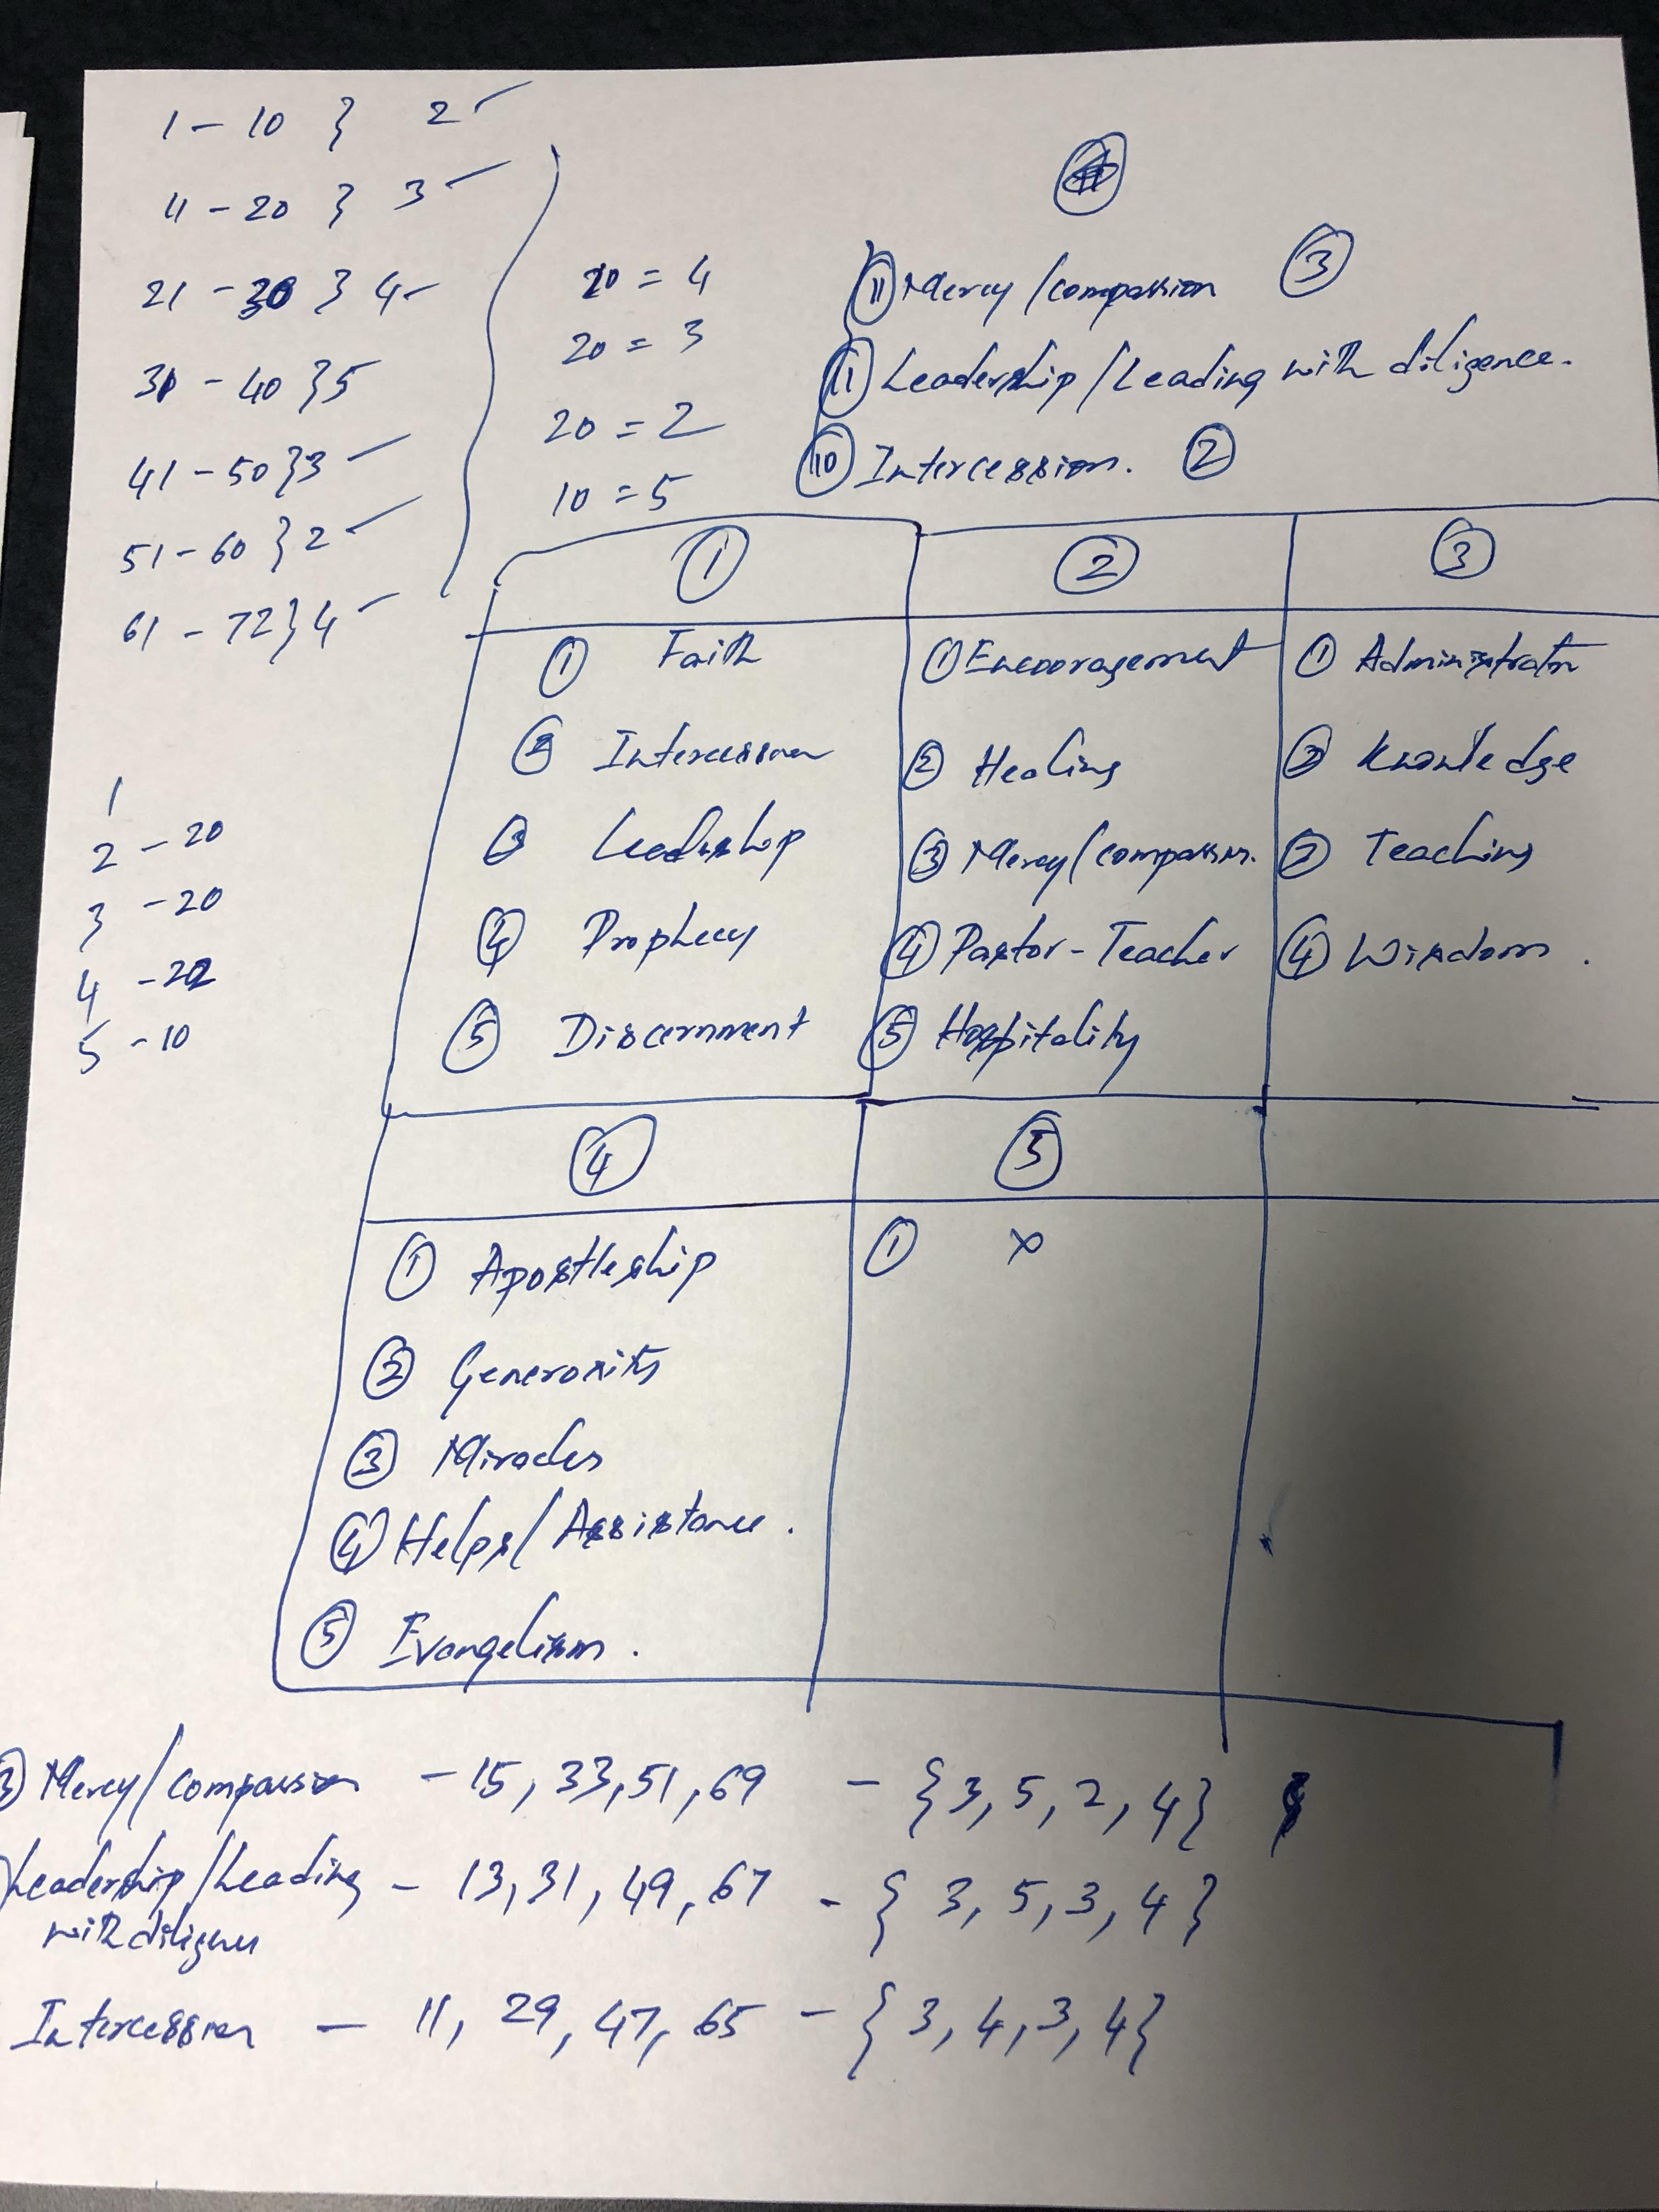 1 - 10 } 2 ✓
11 - 20 } 3 ✓
21 - 30 } 4 ✓
31 - 40 } 5
41 - 50 } 3 ✓
51 - 60 } 2 ✓
61 - 72 } 4 ✓
20 = 4
20 = 3
20 = 2
10 = 5
11 Mercy/compassion 3
11 Leadership/Leading with diligence.
10 Intercession. 2
1
2 - 20
3 - 20
4 - 22
5 - 10
1 2 3
1 Faith 1 Encouragement 1 Administratn
2 Intercession 2 Healing 2 Knowledge
3 Leadership 3 Mercy/compassion. 3 Teaching
4 Prophecy 4 Pastor-Teacher 4 Wisdom.
5 Discernment 5 Hospitality
4 5
1 Apostleship 1 x
2 Generosity
3 Miracles
4 Helps/Assistance.
5 Evangelism.
3 Mercy/compassion - 15, 33, 51, 69 - {3, 5, 2, 4}
Leadership/Leading - 13, 31, 49, 67 - {3, 5, 3, 4}
with diligence
Intercession - 11, 29, 47, 65 - {3, 4, 3, 4}